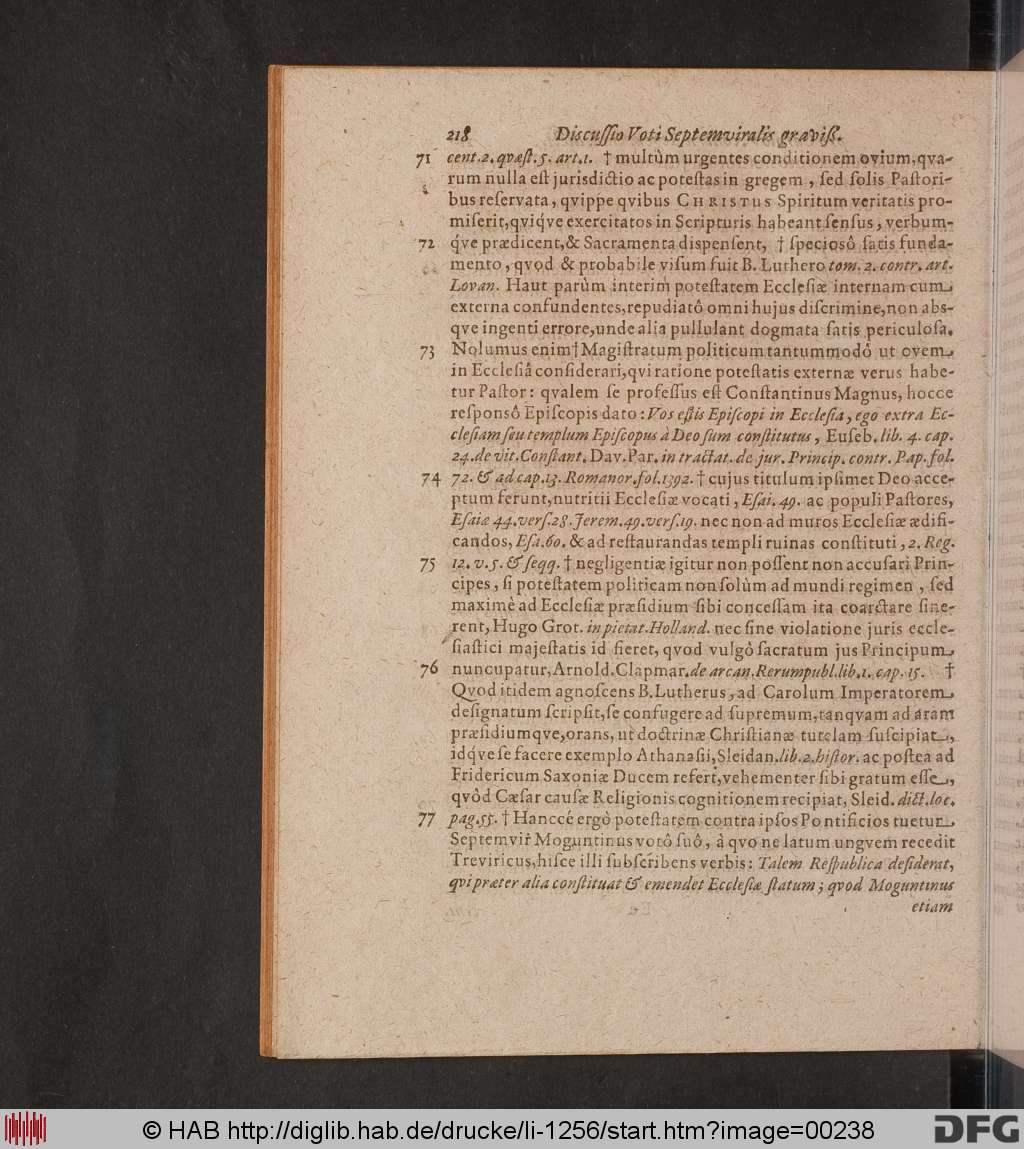 218 Discussio Voti Septemviralis graviss.
71 cent. 2. quæst. 5. art. 1. † multùm urgentes conditionem ovium, qva-
rum nulla est jurisdictio ac potestas in gregem, sed solis Pastori-
bus reservata, qvippe qvibus CHRISTUS Spiritum veritatis pro-
miserit, qviq́ve exercitatos in Scripturis habeant sensus, verbum-
72 q́ve prædicent, & Sacramenta dispensent, † speciosô satis funda-
mento, qvod & probabile visum fuit B. Luthero tom. 2. contr. art.
Lovan. Haut parùm interim potestatem Ecclesiæ internam cum
externa confundentes, repudiatô omni hujus discrimine, non abs-
qve ingenti errore, unde alia pullulant dogmata satis periculosa.
73 Nolumus enim † Magistratum politicum tantummodò ut ovem
in Ecclesiâ considerari, qvi ratione potestatis externæ verus habe-
tur Pastor: qvalem se professus est Constantinus Magnus, hocce
responsô Episcopis dato: Vos estis Episcopi in Ecclesia, ego extra Ec-
clesiam seu templum Episcopus à Deo sum constitutus, Euseb. lib. 4. cap.
24. de vit. Constant. Dav. Par. in tractat. de jur. Princip. contr. Pap. fol.
74 72. & ad cap. 13. Romanor. fol. 1392. † cujus titulum ipsimet Deo acce-
ptum ferunt, nutritii Ecclesiæ vocati, Esai. 49. ac populi Pastores,
Esaiæ 44. vers. 28. Jerem. 49. vers. 19. nec non ad muros Ecclesiæ ædifi-
candos, Esa. 60. & ad restaurandas templi ruinas constituti, 2. Reg.
75 12. v. 5. & seqq. † negligentiæ igitur non possent non accusari Prin-
cipes, si potestatem politicam non solùm ad mundi regimen, sed
maximè ad Ecclesiæ præsidium sibi concessam ita coarctare sine-
rent, Hugo Grot. in pietat. Holland. nec sine violatione juris eccle-
siastici majestatis id fieret, qvod vulgò sacratum jus Principum
76 nuncupatur, Arnold. Clapmar. de arcan. Rerumpubl. lib. 1. cap. 15. †
Qvod itidem agnoscens B. Lutherus, ad Carolum Imperatorem
designatum scripsit, se confugere ad supremum, tanqvam ad aram
præsidiumqve, orans, ut doctrinæ Christianæ tutelam suscipiat,
idq́ve se facere exemplo Athanasii, Sleidan. lib. 2. histor. ac postea ad
Fridericum Saxoniæ Ducem refert, vehementer sibi gratum esse,
qvôd Cæsar causæ Religionis cognitionem recipiat, Sleid. dict. loc.
77 pag. 55. † Hanccé ergò potestatem contra ipsos Pontificios tuetur
Septemvir Moguntinus votô suô, à qvo ne latum ungvem recedit
Treviricus, hisce illi subscribens verbis: Talem Respublica desiderat,
qvi præter alia constituat & emendet Ecclesiæ statum; qvod Moguntinus
etiam
© HAB http://diglib.hab.de/drucke/li-1256/start.htm?image=00238
DFG